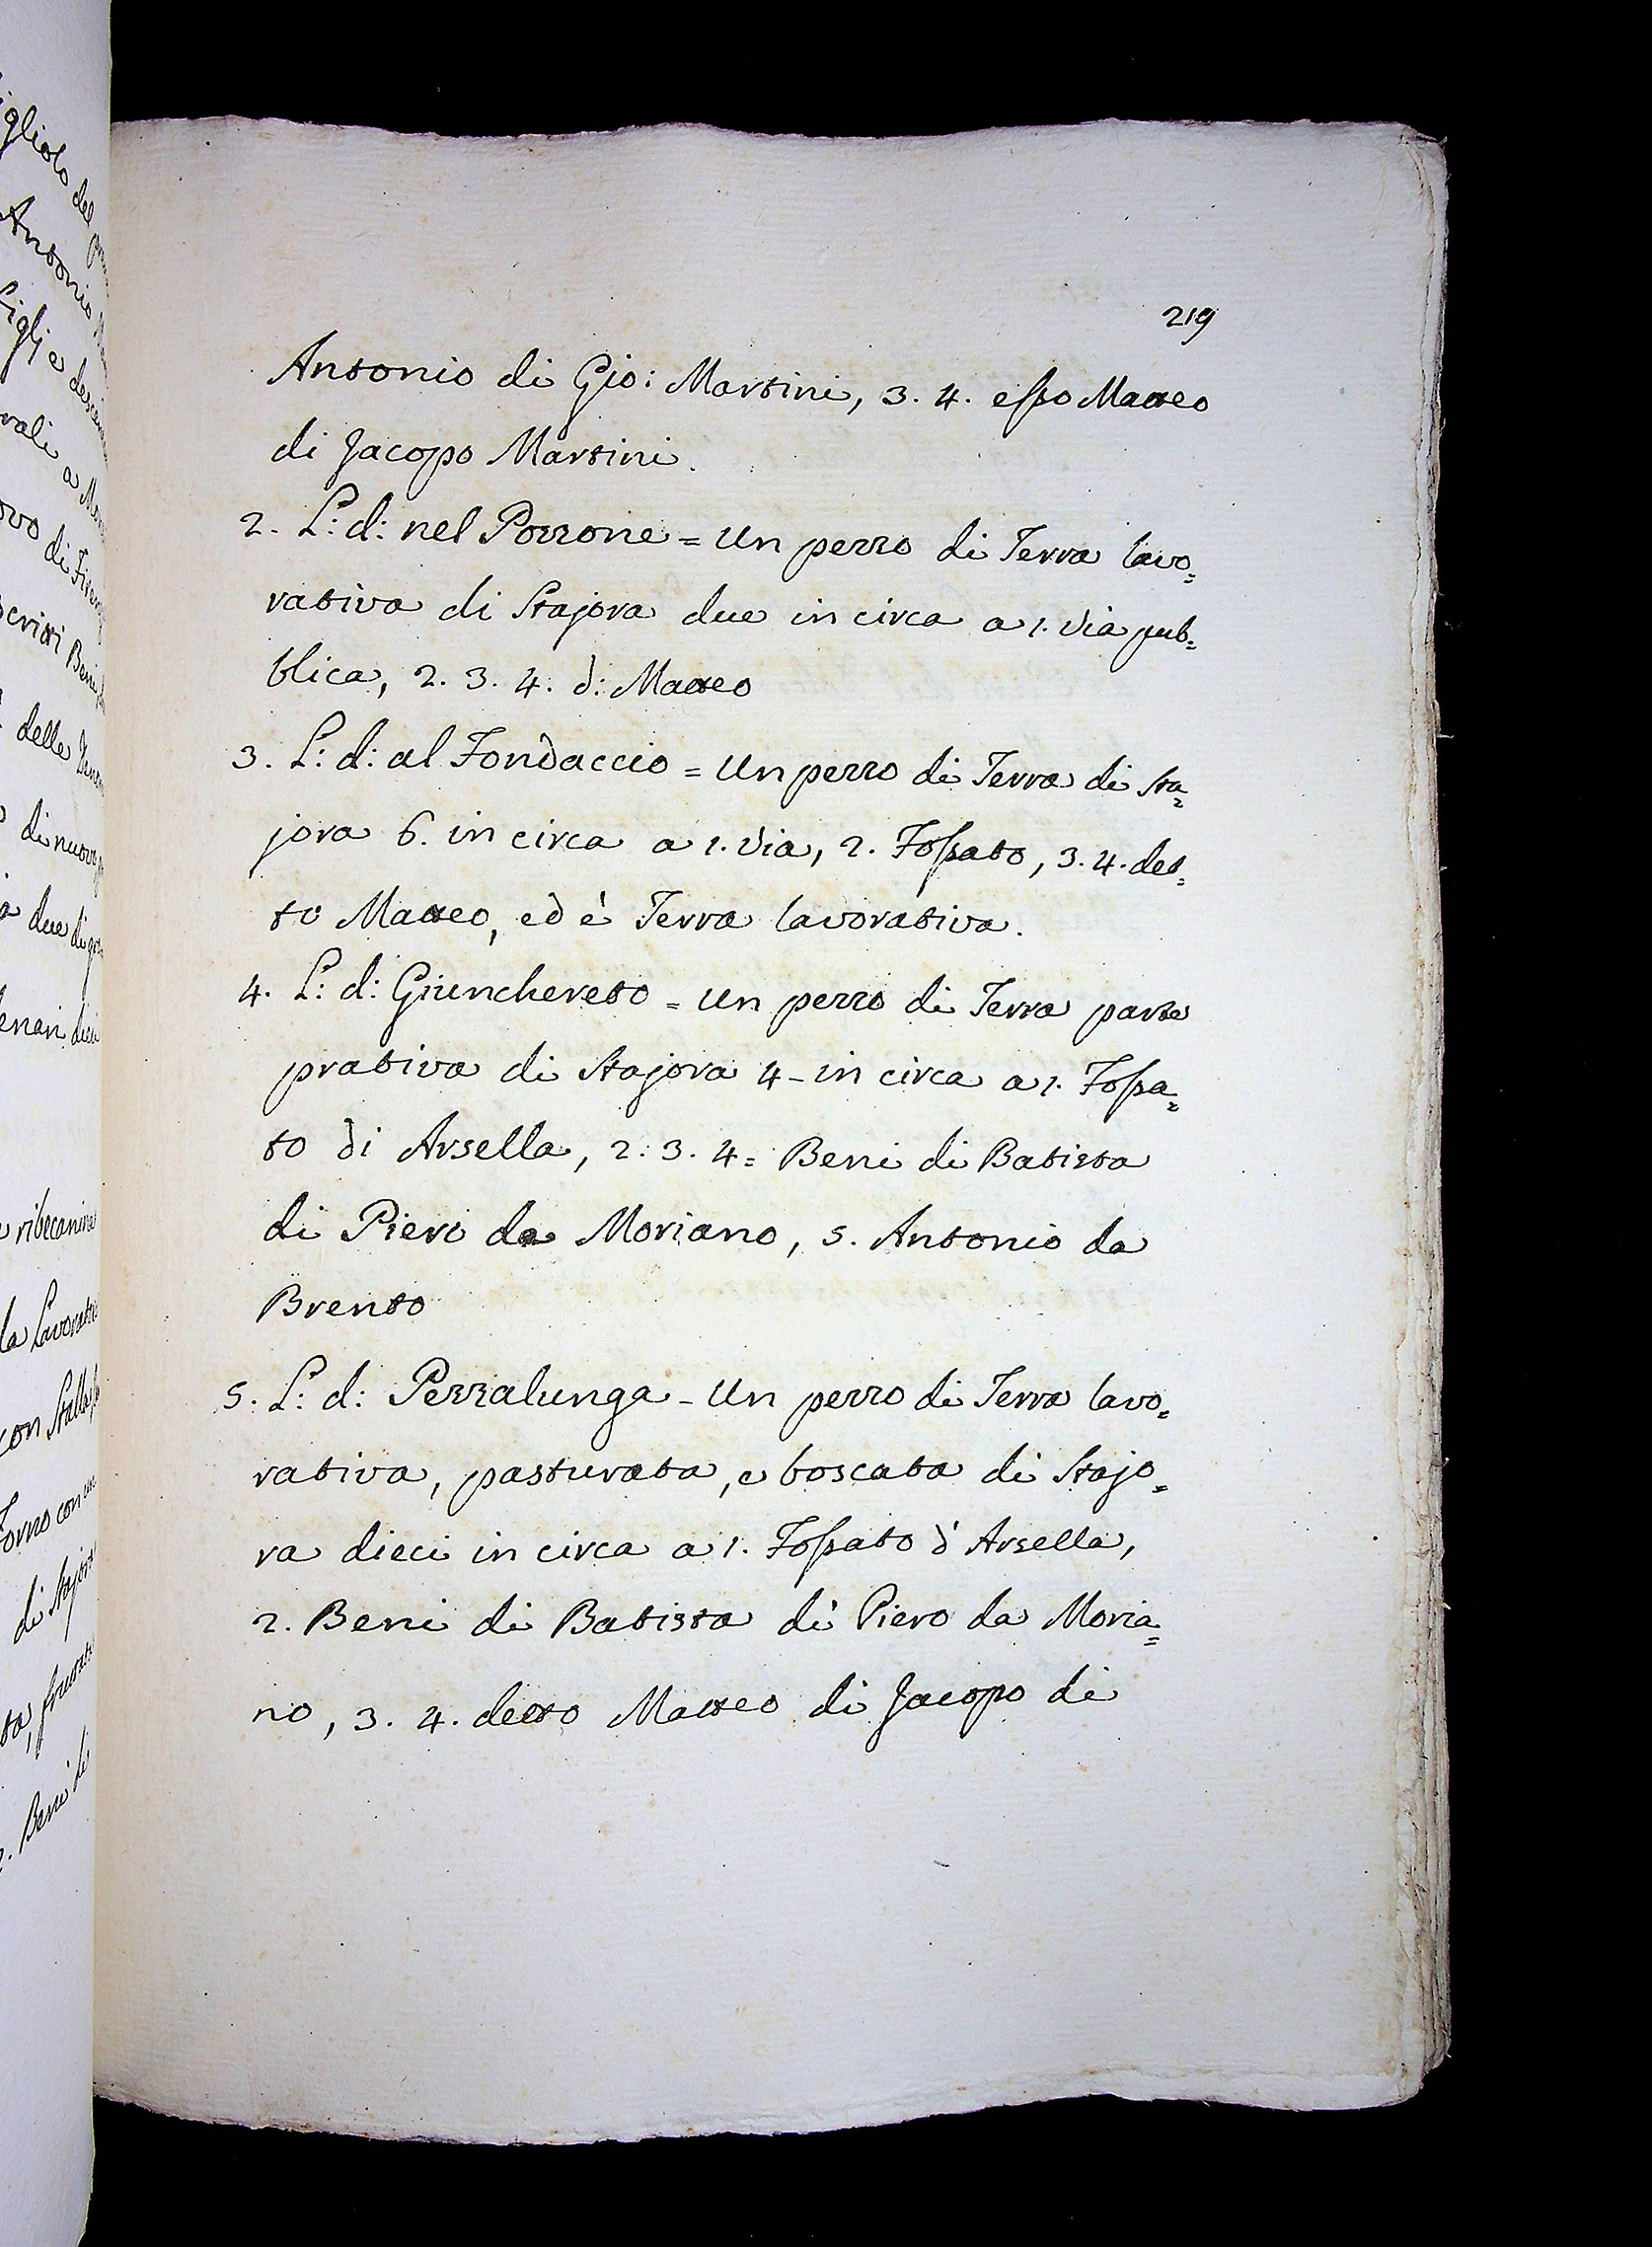 219
Antonio di Gio: Martini, 3. 4. esso Matteo
di Jacopo Martini.
2. L: d: nel Pozzone = Un pezzo di Terra lavo=
rativa di Stajora due in circa a 1. Via pub=
blica, 2. 3. 4. d: Matteo
3. L: d: al Fondaccio = Un pezzo di Terra di sta=
jora 6. in circa a 1. Via, 2. Fossato, 3. 4. det=
to Matteo, ed è Terra lavorativa.
4. L: d: Giunchereto = Un pezzo di Terra parte
prativa di Stajora 4 - in circa a 1. Fossa=
to di Arsella, 2. 3. 4 = Beni di Batista
di Piero da Moriano, 5. Antonio da
Brento
5. L: d: Pezzalunga - Un pezzo di Terra lavo=
rativa, pasturata, e boscata di Stajo=
ra dieci in circa a 1. Fossato d'Arsella,
2. Beni di Batista di Piero da Moria=
no, 3. 4. detto Matteo di Jacopo di